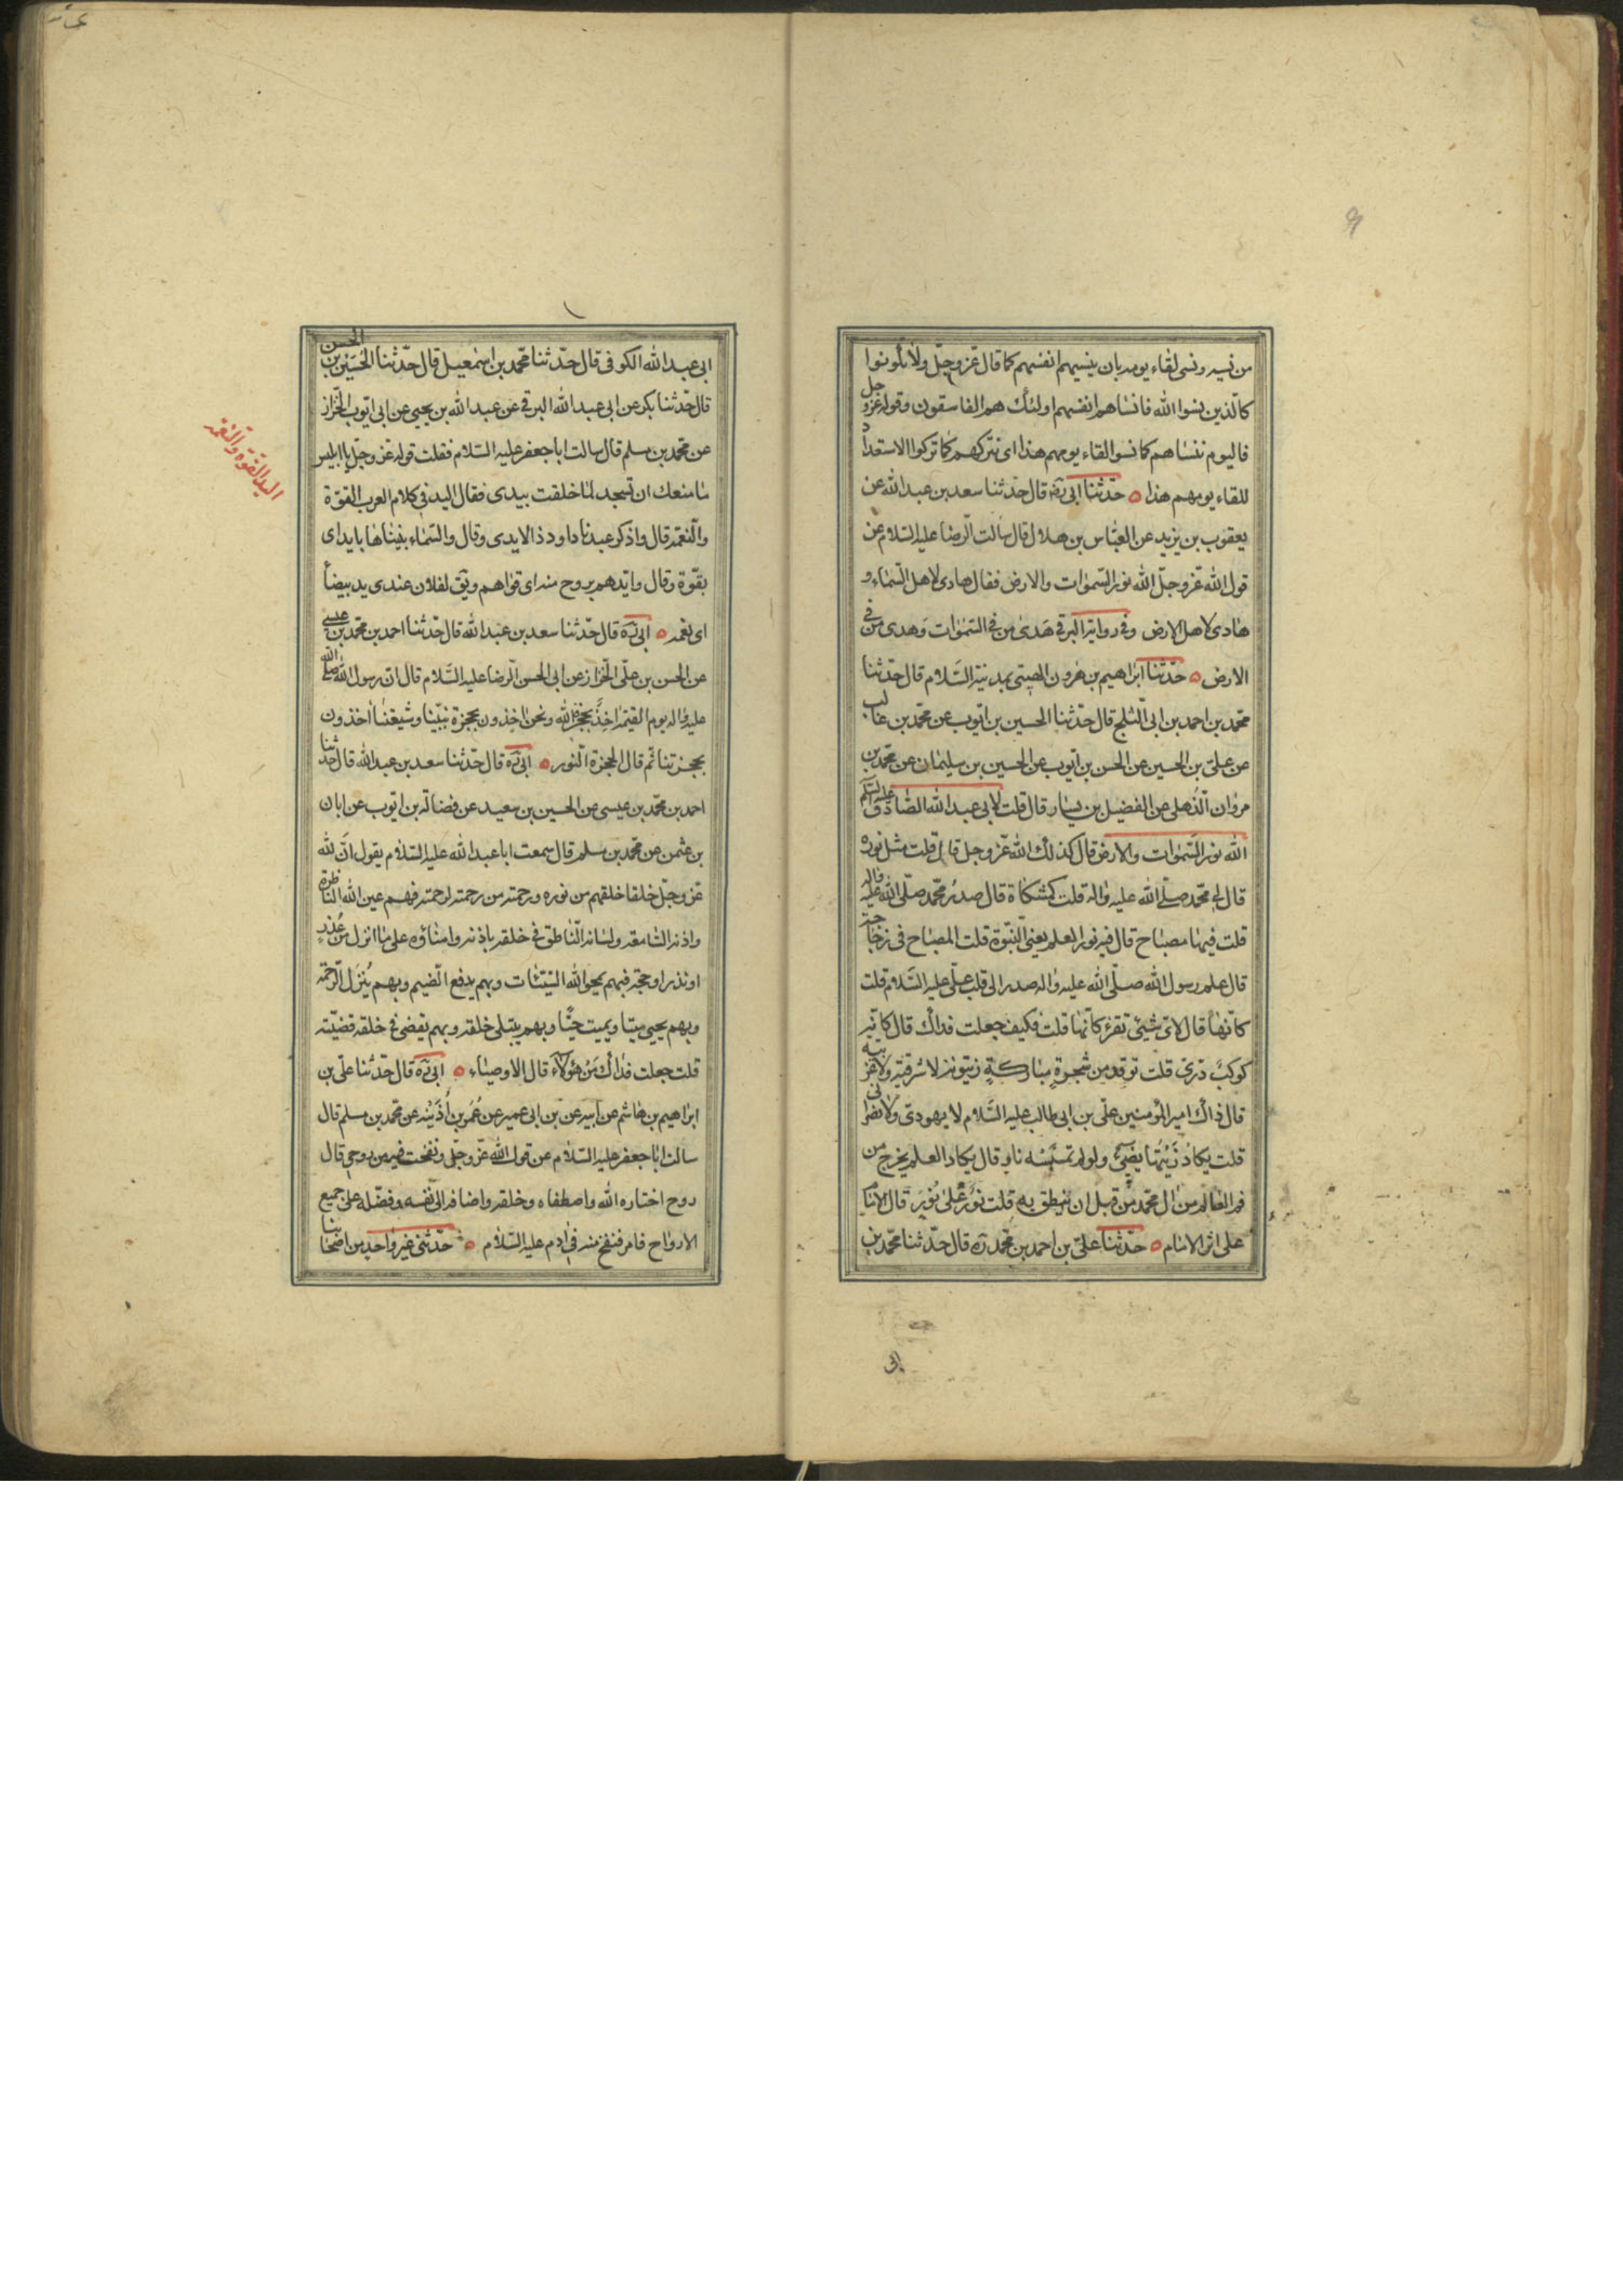 من نسيه ونسى لقاء يومه بان ينسيهم انفسهم كما قال عزوجلّ ولا تكونوا
كالّذين نسوا الله فانساهم انفسهم اولئك هم الفاسقون وقوله عزوجل
فاليوم ننساهم كما نسوا لقاء يومهم هذا اى نتركهم كما تركوا الاستعداد
للقاء يومهم هذا حدّثنا ابى ره قال حدّثنا سعد بن عبد الله عن
يعقوب بن يزيد عن العبّاس بن هلال قال سالت الرضا عليه السّلام عن
قول الله عزّوجلّ الله نور السّموات والارض فقال هادى لاهل السّماء و
هادى لاهل الارض وفى رواية البرقى هدى من فى السّموات وهدى من فى
الارض حدّثنا ابراهيم بن هرون الهيتى بمدينة السّلام قال حدّثنا
محمّد بن احمد بن ابى الثلج قال حدّثنا الحسين بن ايّوب عن محمّد بن غالب
عن علىّ بن الحسين عن الحسن بن ايّوب عن الحسين بن سليمان عن محمّد بن
مروان الذّهلى عن الفضيل بن يسار قال قلت لابى عبد الله الصّادق عليه السّلم
الله نور السّموات والارض قال كذلك الله عزّوجل قال قلت مثل نوره
قال لى محمّد صلّى الله عليه واله قلت كمشكاة قال صدر محمّد صلّى الله عليه واله
قلت فيها مصباح قال فيه نور العلم يعنى النّبوّة قلت المصباح فى زجاجة
قال علم رسول الله صلّى الله عليه واله صدر الى قلب علىّ عليه السّلام قلت
كانّها قال لاىّ شئ تقرء كانّها قلت فكيف جعلت فداك قال كانّه
كوكب درّى قلت توقد من شجرة مباركة زيتونة لا شرقيّة ولا غربيّه
قال ذاك امير المؤمنين علىّ بن ابى طالب عليه السّلام لا يهودى ولا نصرانى
قلت يكاد زيتها يضئ ولو لم تمسسه نار قال يكاد العلم يخرج من
فم العالم من ال محمّد من قبل ان ينطق به قلت نور على نور قال الامام
على اثر الامام حدّثنا علىّ بن احمد بن محمّد ره قال حدّثنا محمّد بن
ابى
ابى عبد الله الكوفى قال حدّثنا محمّد بن اسمعيل قال حدّثنا الحسين بن الحسن
قال حدّثنا بكر عن ابى عبد الله البرقى عن عبد الله بن يحيى عن ابى ايّوب الخزاز
عن محمّد بن مسلم قال سالت ابا جعفر عليه السّلام فقلت قوله عزوجلّ يا ابليس
ما منعك ان تسجد لما خلقت بيدى فقال اليد فى كلام العرب القوّة
والنّعمة قال واذكر عبدنا داود ذا الايدى وقال والسّماء بنيناها بايد اى
بقوّة وقال وايّدهم بروح منه اى قواهم ويق لفلان عندى يد بيضاً
اى نعمه ابى ره قال حدّثنا سعد بن عبد الله قال حدّثنا احمد بن محمّد بن عيسى
عن الحسن بن علّى الخزاز عن ابى الحسن الرضا عليه السّلام قال انّ رسول الله صلّى الله
عليه واله يوم القيمة اخذ بحجزة الله ونحن اخذون بحجزة نبيّنا وشيعتنا اخذون
بحجزتنا ثم قال الحجزة النّور ابى ره قال حدّثنا سعد بن عبد الله قال حدثنا
احمد بن محمّد بن عيسى عن الحسين بن سعيد عن فضالة بن ايّوب عن ابان
بن عثمن عن محمّد بن مسلم قال سمعت ابا عبد الله عليه السّلام يقول انّ لله
عزوجلّ خلقا خلقهم من نوره ورحمة من رحمته لرحمته فهم عين الله الناظرة
واذنه السّامعة ولسانه النّاطق فى خلقه باذنه وامناؤه على ما انزل من عذر
او نذر او حجة فبهم يمحو الله السّيّئات وبهم يدفع الضّيم وبهم ينزل الرّحمة
وبهم يحيى ميتا ويميت حيّا وبهم يبتلى خلقه وبهم يقضى فى خلقه قضيّته
قلت جعلت فداك من هؤلاء قال الاوصياء ابى ره قال حدّثنا علّى بن
ابراهيم بن هاشم عن ابيه عن بن ابى عمير عن عمر بن اذينه عن محمّد بن مسلم قال
سالت ابا جعفر عليه السّلام عن قول الله عزّوجلّ ونفخت فيه من روحى قال
روح اختاره الله واصطفاه وخلقه واضافه الى نفسه وفضّله على جميع
الارواح فامر فنفخ منه فى ادم عليه السّلام حدّثنى غير واحد من اصحابنا
اليد القوة والنعمة